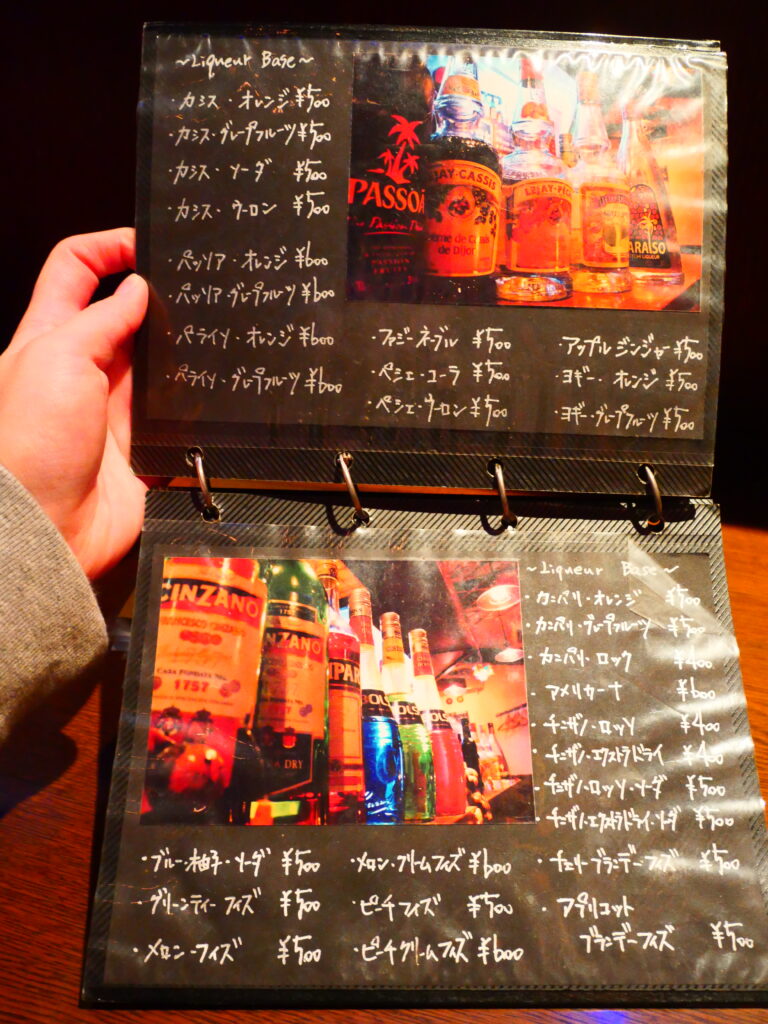 ~Liqueur Base~
・カシス・オレンジ ¥500
・カシス・グレープフルーツ ¥500
・カシス・ソーダ ¥500
・カシス・ウーロン ¥500
・パッソア・オレンジ ¥600
・パッソア・グレープフルーツ ¥600
・パライソ・オレンジ ¥600
・パライソ・グレープフルーツ ¥600
・ファジーネーブル ¥500
・ペシェ・コーラ ¥500
・ペシェ・ウーロン ¥500
・アップルジンジャー ¥500
・ヨギー・オレンジ ¥500
・ヨギー・グレープフルーツ ¥500
PASSOÃ
PASSION FRUITS
EJAY-CASSIS
Crème de Cassis
de Dijon
~Liqueur Base~
・カンパリ・オレンジ ¥500
・カンパリ・グレープフルーツ ¥500
・カンパリ・ロック ¥400
・アメリカーナ ¥600
・チンザノ・ロッソ ¥400
・チンザノ・エクストラドライ ¥400
・チンザノ・ロッソ・ソーダ ¥500
・チンザノ・エクストラドライ・ソーダ ¥500
CINZANO
1757
1757
・ブルー・柚子・ソーダ ¥500
・グリーンティーフィズ ¥500
・メロン・フィズ ¥500
・メロン・クリームフィズ ¥600
・ピーチフィズ ¥500
・ピーチクリームフィズ ¥600
・チェリーブランデーフィズ ¥500
・アプリコット
ブランデーフィズ ¥500